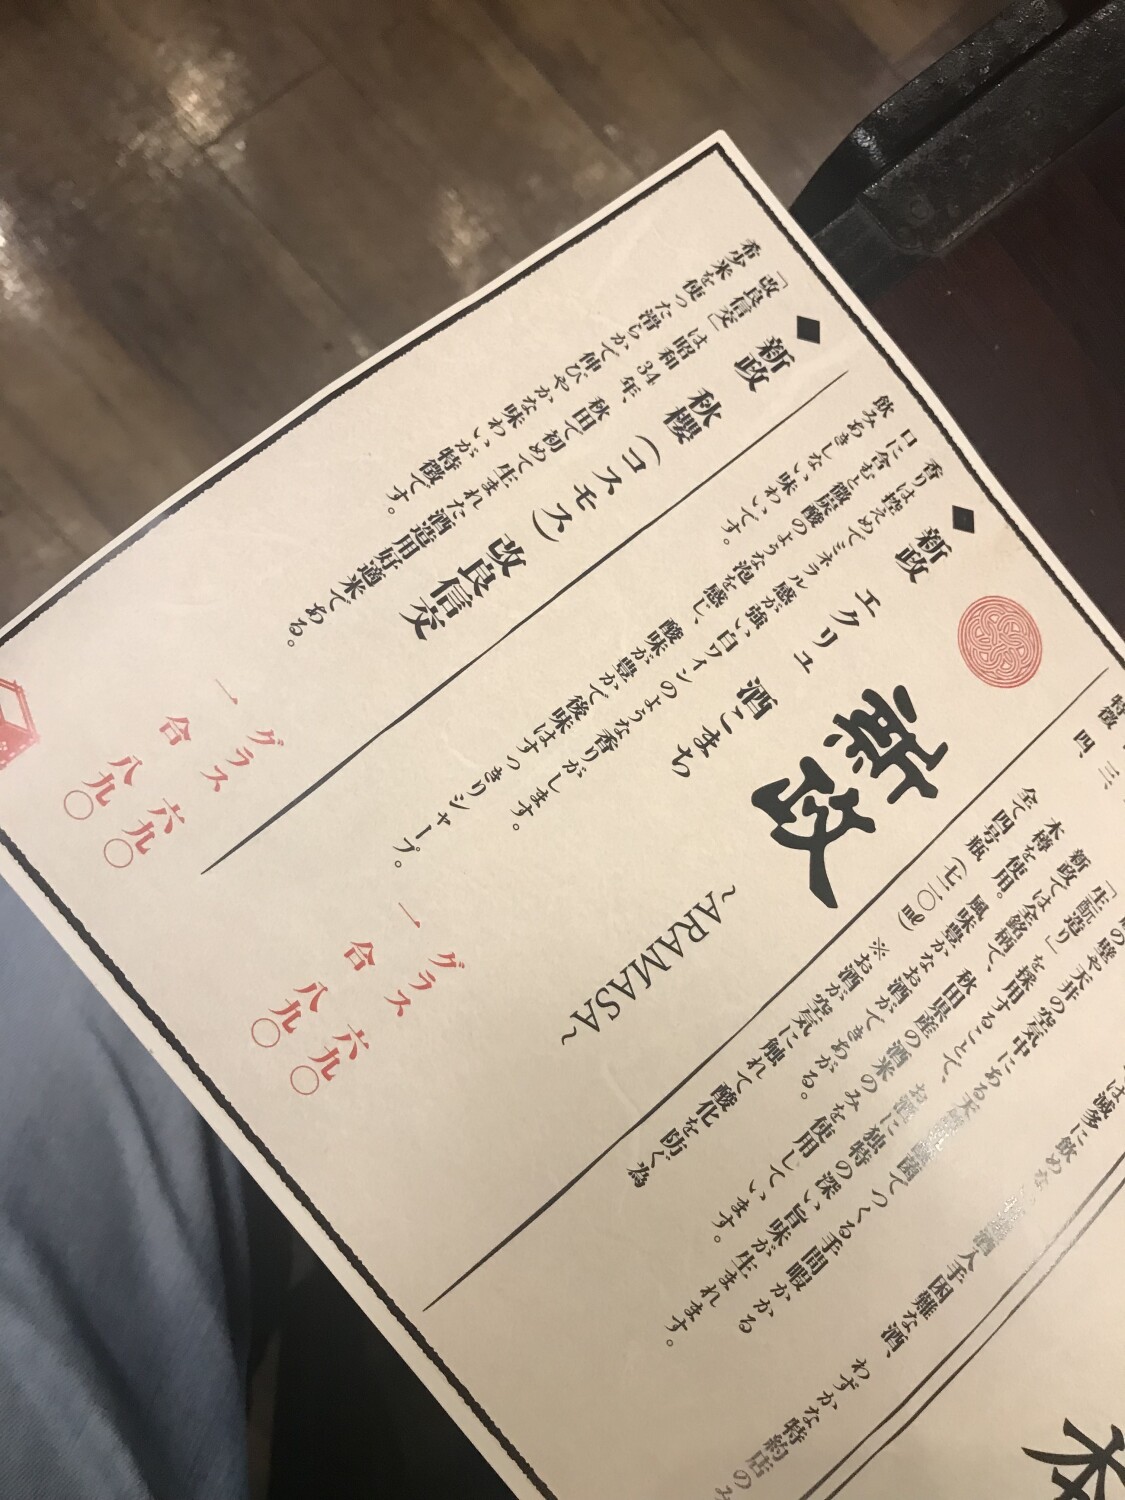 は滅多に飲めない
酒
入手困難な酒、
わずかな特約店のみ
の壁や天井の空気中にある天
菌でつくる手間暇かかる
「生酛造り」を採用することで、
お酒に独特の深い旨味が生まれます。
新政では全銘柄で、秋田県産の酒米のみを使用しています。
木樽を使用。
風味豊かなお酒ができあがる。
全て四号瓶(七二〇㎖)
※お酒が空気に触れて酸化を防ぐ為
三、
特徴四
新政
~ARAMASA~
◆新政 エクリュ 酒こまち
香りは控えめでミネラル感が強い白ワインのような香りがします。
口に含むと微炭酸のような泡を感じ、酸味が豊かで後味はすっきりシャープ。
飲みあきしない味わいです。
グラス 六九〇
一合 八九〇
◆新政 秋櫻(コスモス) 改良信交
「改良信交」は昭和34年、秋田で初めて生まれた酒造用好適米である。
希少米を使った滑らかで伸びやかな味わいが特徴です。
グラス 六九〇
一合 八九〇
本